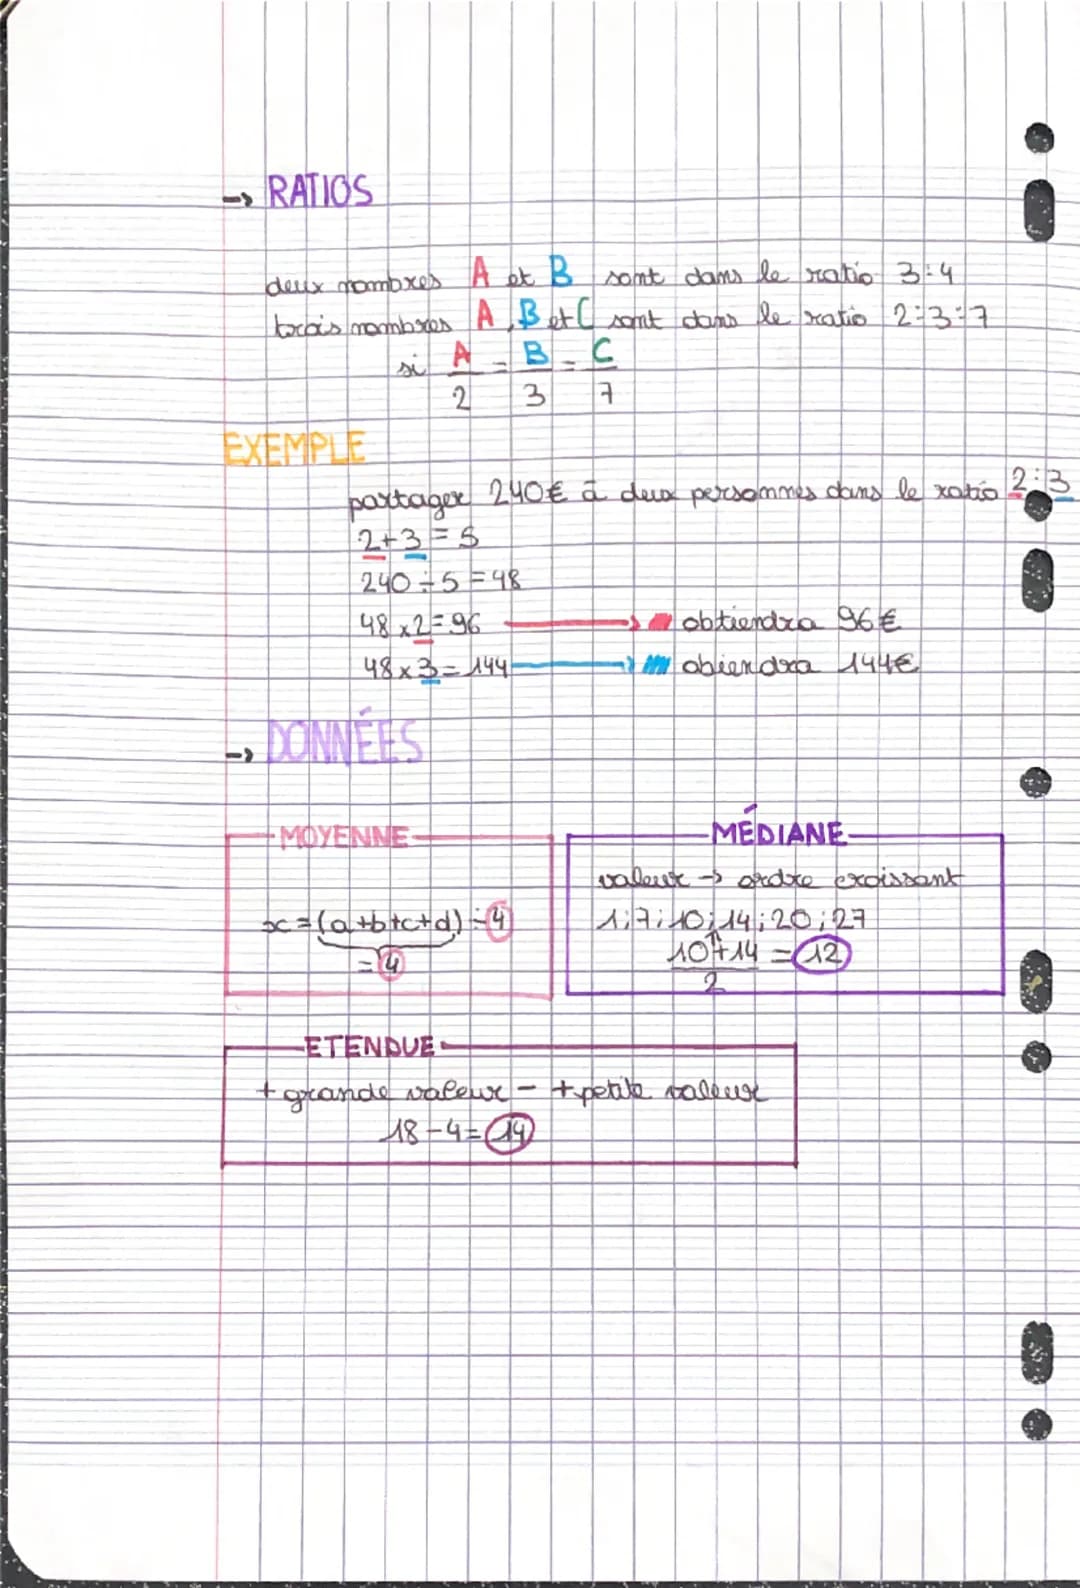 → RATIOS
deux nombres A et B sont dans le ratio 3:4
trois nombres A, B et C sont dans le ratio 2:3:7
si A/2 = B/3 = C/7
EXEMPLE
partager 240€ à deux personnes dans le ratio 2:3
2+3=5
240÷5=48
48×2=96 → obtiendra 96€
48×3=144 → obiendra 144€
→ DONNÉES
MOYENNE
x=(a+b+c+d)÷4
=4
MÉDIANE
valeur → ordre croissant
1;7;10;14;20;27
10+14/2 = 12
ETENDUE
+ grande valeur - + petite valeur
18-4=14